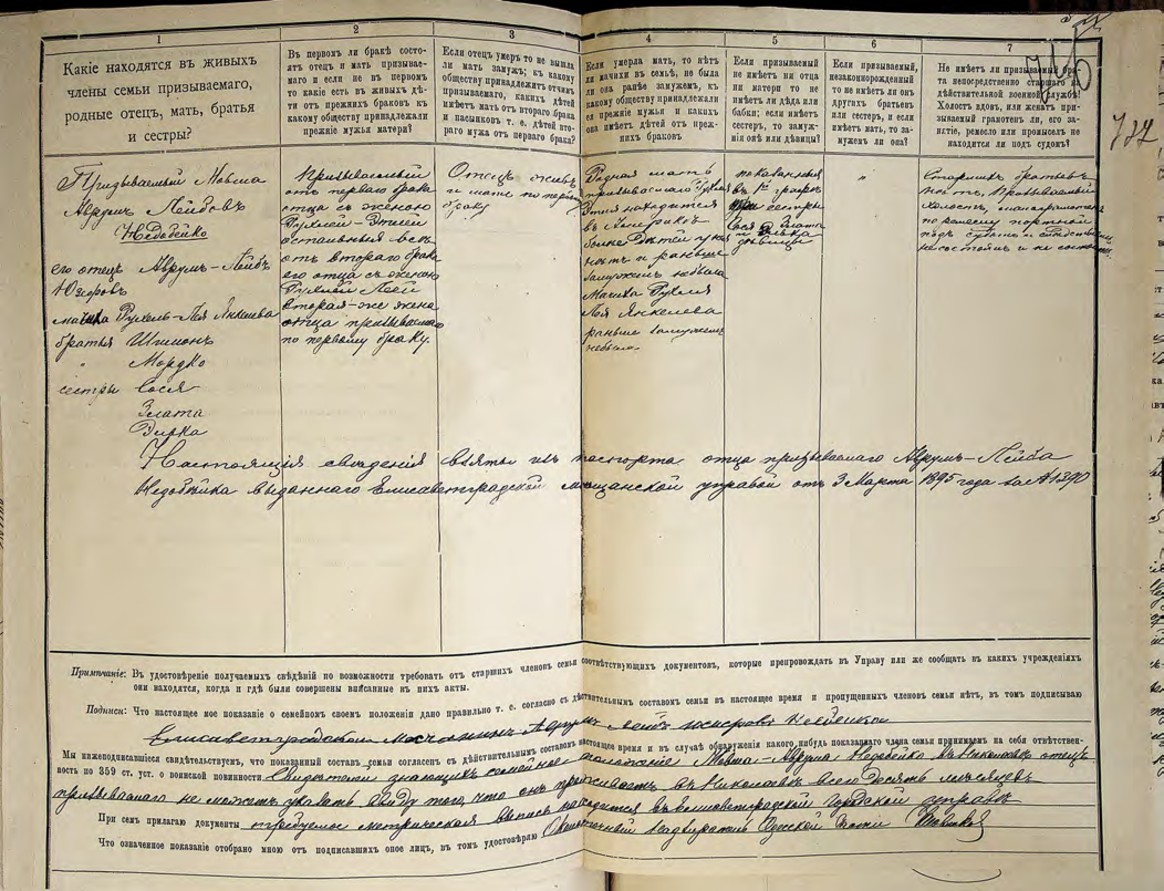 1
Какіе находятся въ живыхъ
члены семьи призываемаго,
родные отецъ, мать, братья
и сестры?
2
Въ первомъ ли бракѣ состо-
ятъ отецъ и мать призывае-
маго и если не въ первомъ
то какіе есть въ живыхъ дѣ-
ти отъ прежнихъ браковъ къ
какому обществу принадлежали
прежніе мужья матери?
3
Если отецъ умеръ то не вышла
ли мать замужъ; къ какому
обществу принадлежитъ отчимъ
призываемаго, какихъ дѣтей
имѣетъ мать отъ втораго брака
и пасынковъ т. е. дѣтей вто-
раго мужа отъ перваго брака?
4
Если умерла мать, то нѣтъ
ли мачихи въ семьѣ, не была
ли она ранѣе замужемъ, къ
какому обществу принадлежали
ея прежніе мужья и какихъ
она имѣетъ дѣтей отъ преж-
нихъ браковъ
5
Если призываемый
не имѣетъ ни отца
ни матери то не
имѣетъ ли дѣда или
бабки; если имѣетъ
сестеръ, то замуж-
нія онѣ или дѣвицы?
6
Если призываемый,
незаконнорожденный
то не имѣетъ ли онъ
другихъ братьевъ
или сестеръ, и если
имѣетъ мать, то за-
мужемъ ли она?
7
Не имѣетъ ли призываемый бра-
та непосредственно старшаго на
дѣйствительной военной службѣ?
Холостъ вдовъ, или женатъ при-
зываемый грамотенъ ли, его за-
нятіе, ремесло или промыселъ не
находится ли подъ судомъ?
Призываемый Мовша
Аврумъ Лейбовъ
Недобейко
его отецъ Аврумъ-Лейбъ
мачиха Рухель-Лея Янкелева
братья Шимонъ
" Мордко
сестры Сося
Злата
Призываемый
отъ перваго брака
отца съ женою
Рухлей-Этлей
остальныя всѣ
отъ втораго брака
его отца съ женою
Рухлей Леей
вторая-же жена
отца призываемаго
по первому браку.
Отецъ живъ
и мать по первому
браку
Родная мать
призываемаго Рухля
Этля находится
въ Америкѣ
болѣе дѣтей у нея
нѣтъ и раньше
замужемъ не была
Мачиха Рухля
Лея Янкелева
раньше замужемъ
не была.
показанныя
въ 1й графѣ
сестры
Сося Злата
дѣвицы
"
Старшихъ братьевъ
нѣтъ, призываемый
холостъ,
по ремеслу портной
подъ судомъ и слѣдствіемъ
не состоитъ и не состоялъ.
Настоящія свѣдѣнія взяты изъ паспорта отца призываемаго Аврумъ-Лейба
Недобейка выданнаго Елисаветградской мѣщанской управой отъ 3 Марта 1895 года за № 1390
Примѣчаніе: Въ удостовѣреніе получаемыхъ свѣдѣній по возможности требовать отъ старшихъ членовъ семьи соотвѣтствующихъ документовъ, которые препровождать въ Управу или же сообщать въ какихъ учрежденіяхъ
они находятся, когда и гдѣ были совершены вписанные въ нихъ акты.
Подписи: Что настоящее мое показаніе о семейномъ своемъ положеніи дано правильно т. е. согласно съ дѣйствительнымъ составомъ семьи въ настоящее время и пропущенныхъ членовъ семьи нѣтъ, въ томъ подписываю
Елисаветградскій Мѣщанинъ Аврумъ Лейбъ
Мы нижеподписавшіеся свидѣтельствуемъ, что показанный составъ семьи согласенъ съ дѣйствительнымъ составомъ настоящее время и въ случаѣ обнаруженія какого нибудь показанаго члена семьи принимаемъ на себя отвѣтствен-
ность по 359 ст. уст. о воинской повинности. Свидетели знающихъ семейное положеніе Мовша-Аврума Недобейко въ Николаевѣ отецъ
призываемаго не можетъ указать ввиду того, что онъ проживаетъ въ Николаевѣ всего десять мѣсяцевъ
При семъ прилагаю документы требуемое метрическая выпись находится въ Елисаветградской Городской управѣ
Что означенное показаніе отобрано мною отъ подписавшихъ оное лицъ, въ томъ удостовѣряю Околоточный Надзиратель Одесской Части